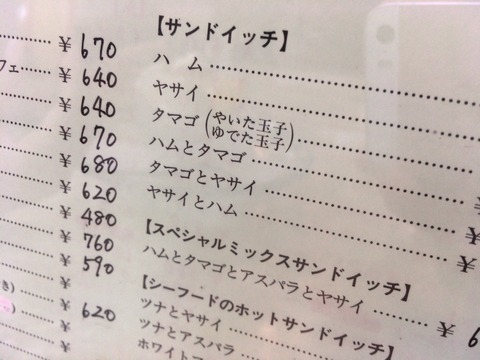 ¥670
フェ ¥640
¥640
¥670
¥680
¥620
¥480
¥760
¥590
¥
き) ¥
¥620
¥
¥
【サンドイッチ】
ハ ム
ヤサイ
タマゴ(やいた玉子 ゆでた玉子)
ハムとタマゴ
タマゴとヤサイ ¥
ヤサイとハム ¥
【スペシャルミックスサンドイッチ】
ハムとタマゴとアスパラとヤサイ ¥6
【シーフードのホットサンドイッチ】
ツナとヤサイ
ツナとアスパラ
ホワイト